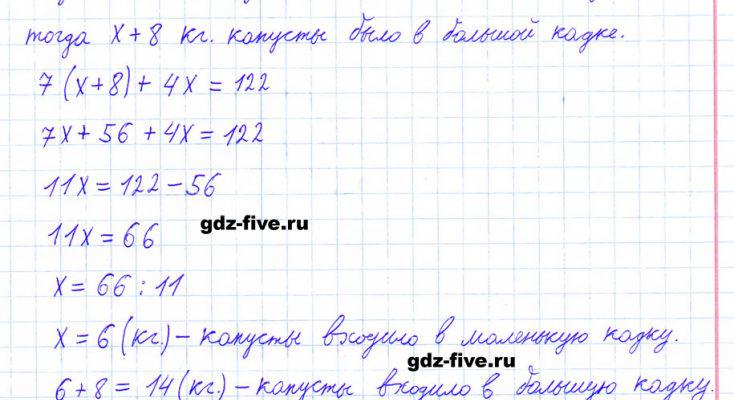 тогда х+8 кг. капусты было в большой кадке.
7(х+8)+ 4х = 122
7х+ 56 + 4х = 122
11х = 122 – 56
11х = 66
gdz-five.ru
х = 66 : 11
х = 6 (кг.) – капусты входило в маленькую кадку.
gdz-five.ru
6+8 = 14 (кг.) – капусты входило в большую кадку.